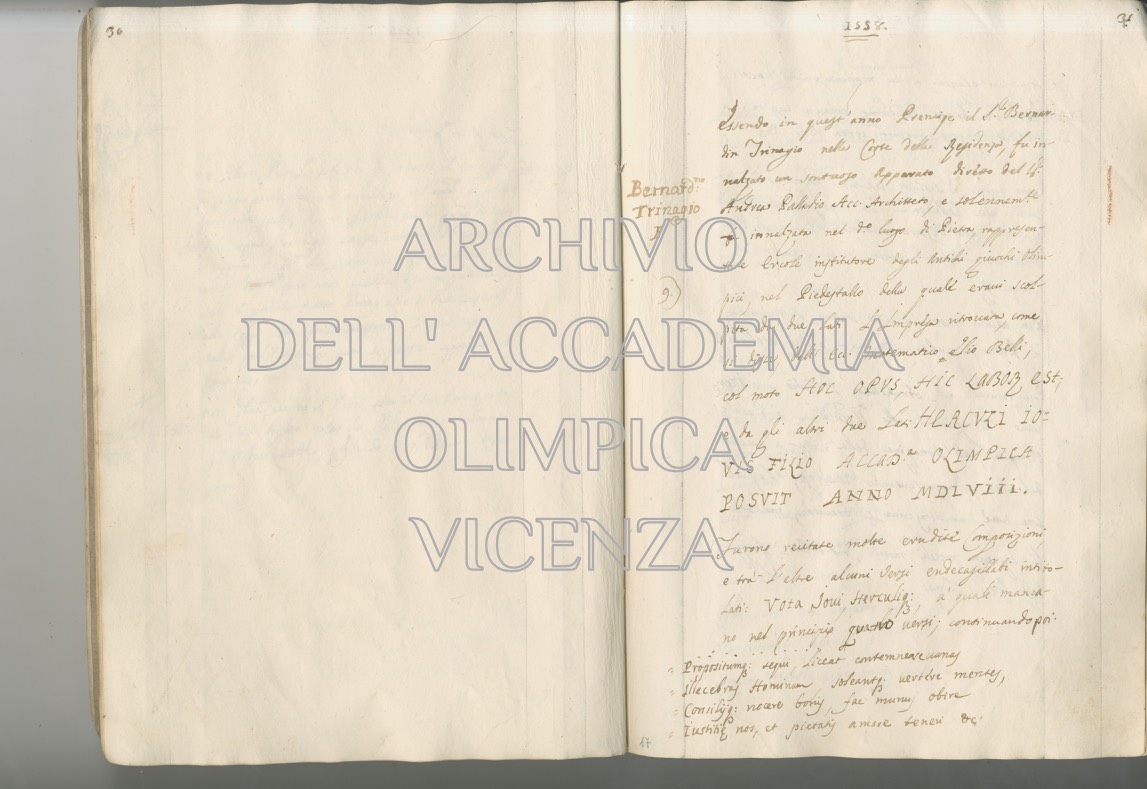 30
1558.
Essendo in quest'anno Prencipe il S.r Bernar-
din Trinagio nella Corte della Residenza, fu in-
nalzato un sontuoso Apparato diretto dal S.r
Andrea Palladio Acc. Architteto, e solennem.te
innalzata nel d.o luogo di Pietra, rappresen-
Ercole institutore degli Antichi giuochi Olim-
pici, nel Piedestallo della quale eravi scol-
pita da due Lati L'Impresa ritrovata, come
si disse, dall' Ecc. Matematico Elio Belli,
col moto HOC OPVS, HIC LABOR EST;
e da gli altri due Lati HERCVLI IO-
VIS FILIO ACCAD.a OLIMPICA
POSVIT ANNO MDLVIII.
Bernard.no
Trinagio
P.
9.)
Furono recitate molte erudite Composizioni,
e trà L'altre alcuni Versi endecasillabi intito-
lati: Vota Jovi Herculiq:, a' quali manca-
no nel principio quatro versi; continuando poi.
= Propositumq: sequi, liceat contemnere vanas
= Illecebras Hominum soleantq: vertere mentes,
= Consilijq: nocere bonis, fac munus obire
= Iustitiæ nos, et pietatis amore teneri &c.
17
ARCHIVIO
DELL' ACCADEMIA
OLIMPICA.
VICENZA